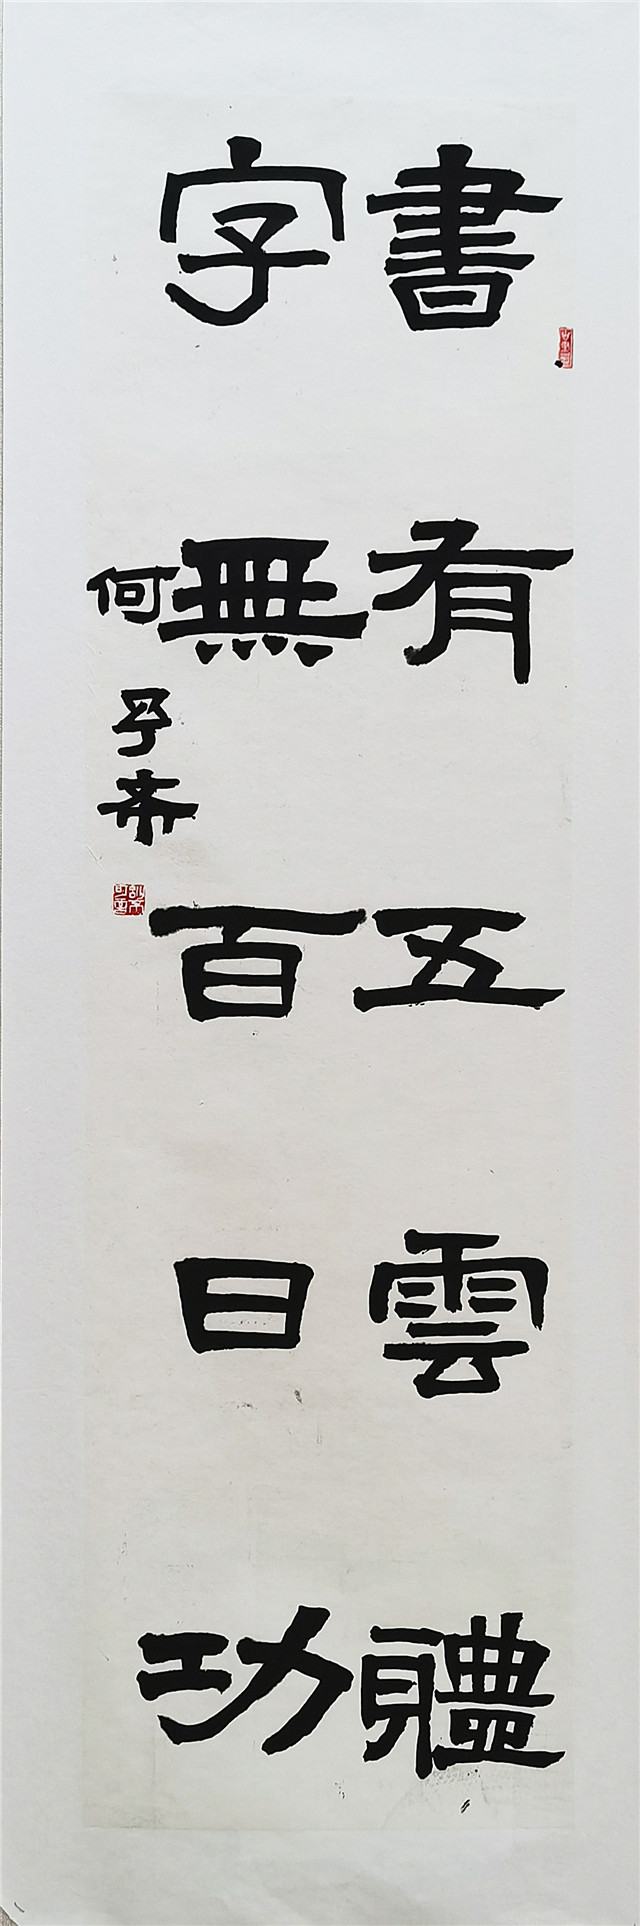 書有五雲體
字無百日功
何
齋